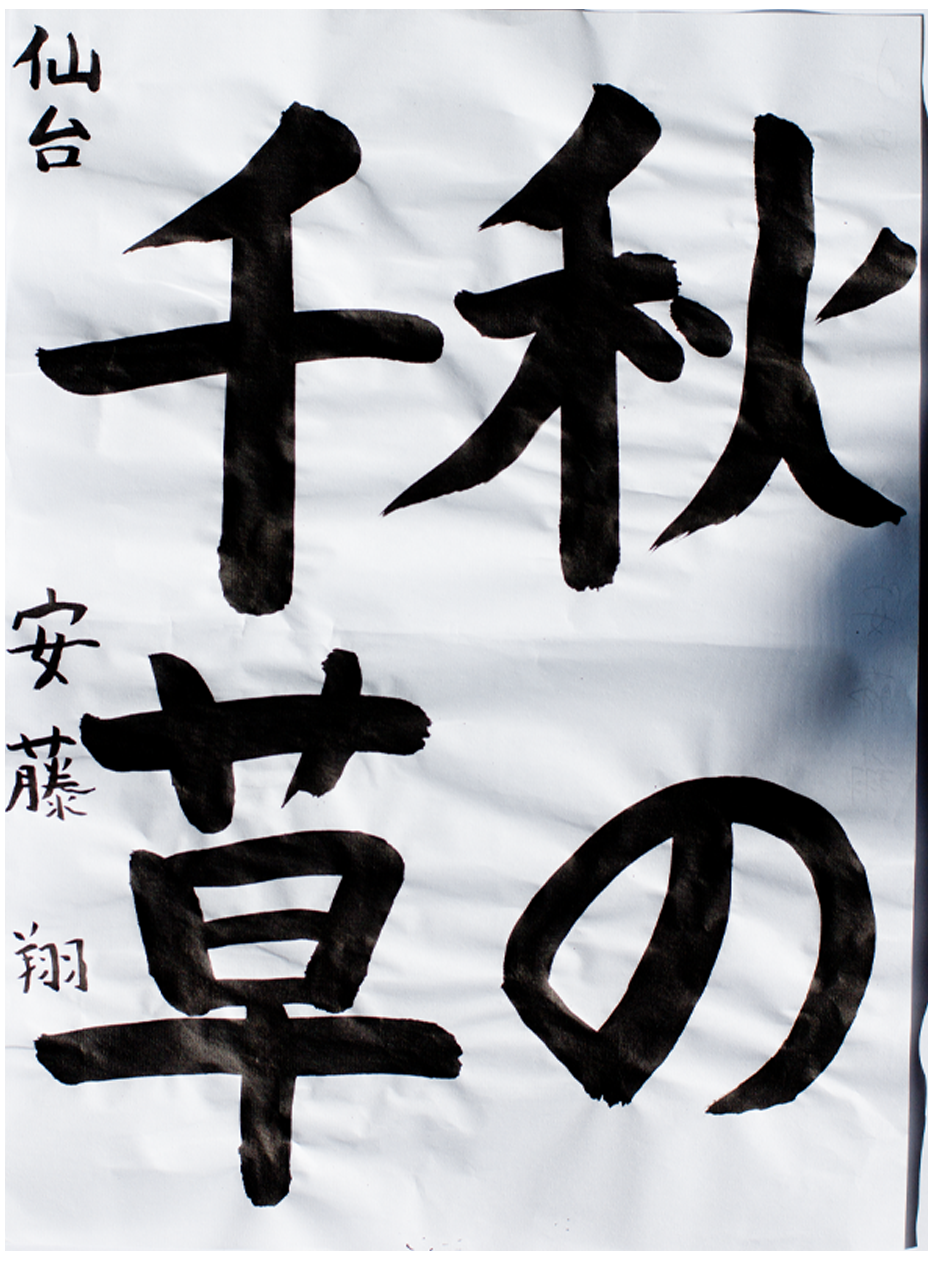 秋の
千草
仙台 安藤 翔